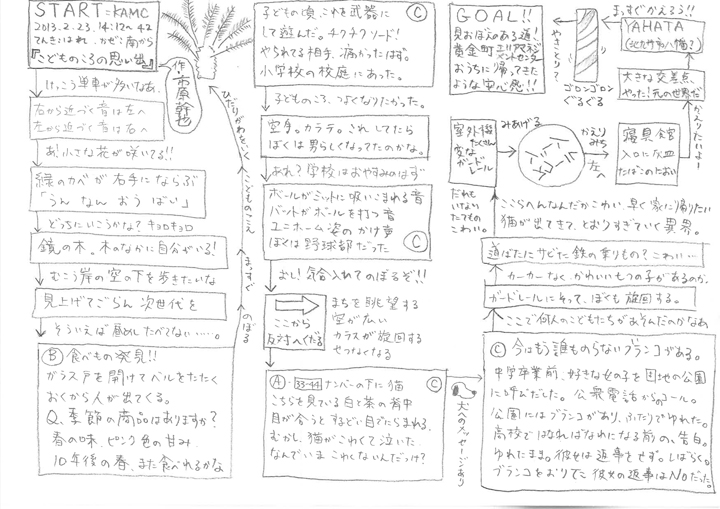 START=KAMC
2013.2.23. 14:12〜 42
てんき:はれ、かぜ:南から
『こどものころの思い出』
作・市原幹也
けっこう単車が多いなぁ、
右から近づく音は左へ
左から近づく音は右へ
あ!小さな花が咲いてる!!
緑のカベが右手にならぶ
「うん なん おう ばい」
どっちにいこうかな?キョロキョロ
鏡の木。木のなかに自分がいる!
むこう岸の空の下を歩きたいな
見上げてごらん 次世代を
そういえば昼めしたべてない……。
Ⓑ 食べもの発見!!
ガラス戸を開けてベルをたたく
おくから人が出てくる。
Q.季節の商品はありますか?
春の味、ピンク色の甘み
10年後の春、また食べれるかな
ひだりがわをいく
こどものこえ
まっすぐ
のぼる
子どもの頃、これを武器に
して遊んだ。チクチクソード!
やられてる相手、痛かったはず。
小学校の校庭にあった。
Ⓒ
子どものころ、つよくなりたかった。
空手。カラテ。これしてたら
ぼくは男らしくなってたのかな。
あれ?学校はおやすみのはず
ボールがミットに吸いこまれる音
バットがボールを打つ音
ユニホーム姿のかけ声
ぼくは野球部だった
Ⓒ
よし!気合入れてのぼるぞ!!
ここから
反対へくだる
まちを眺望する
空が広い
カラスが旋回する
せつなくなる
Ⓐ・33-44ナンバーの下に猫
Ⓒ
こちらを見ている白と茶の背中
目が合うとするどい目でにらまれる
むかし、猫がこわくて泣いた
なんでいまこわくないんだっけ?
犬のメッセージあり
GOAL!!
見おぼえのある道!
黄金町エリアマネジ
メントセンター
おうちに帰ってきた
ような安心感!!
やきとり?
ゴロンゴロン
ぐるぐる
まっすぐかえろう!!
YAHATA
(北九州市八幡?)
大きな交差点
やった!元の世界だ
かえりたいよー
室外機
たくさん
変な
ガード
レール
みあげる
かえり
みち
左へ
寝具館
入口に灰皿
たばこのにおい
だれも
いない
たてもの
こわい。
ここらへんなんだかこわい、早く家に帰りたい
猫が出てきて、とおりすぎていく異界。
道ばたにサビた鉄の乗りもの?こわい…
カーカーなく、かわいいもつの子があるのか、
ガードレールにそって、ぼくも旋回する。
ここで何人のこどもたちがあそんだのかなぁ
Ⓒ 今はもう誰ものらないブランコがある。
中学卒業前、好きな女の子を団地の公園
に呼びだした。公衆電話からコール。
公園にはブランコがあり、ふたりでゆれた。
高校ではなればなれになる前の、告白。
ゆれたまま。彼女は返事をせず。しばらく。
ブランコをおりて。彼女の返事はNoだった。